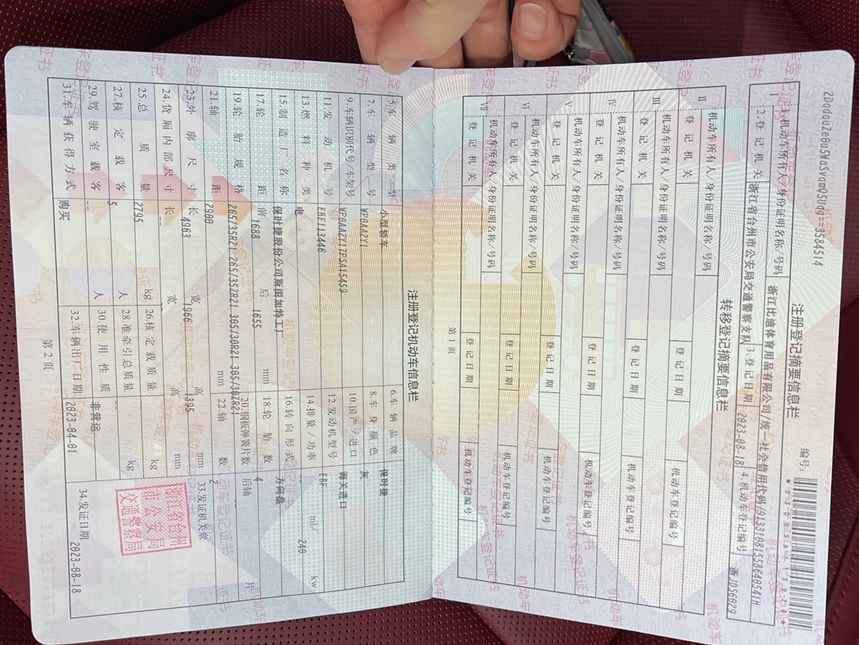 注册登记摘要信息栏
编号:
1.机动车所有人/身份证明名称/号码 浙江比迪体育用品有限公司/统一社会信用代码/
2.登记机关 浙江省台州市公安局交通警察支队 3.登记日期 2023-08-18 4.机动车登记编号
转移登记摘要信息栏
II 机动车所有人/身份证明名称/号码
登记机关 登记日期 机动车登记编号
III 机动车所有人/身份证明名称/号码
登记机关 登记日期 机动车登记编号
IV 机动车所有人/身份证明名称/号码
登记机关 登记日期 机动车登记编号
V 机动车所有人/身份证明名称/号码
登记机关 登记日期 机动车登记编号
VI 机动车所有人/身份证明名称/号码
登记机关 登记日期 机动车登记编号
VII 机动车所有人/身份证明名称/号码
登记机关 登记日期 机动车登记编号
第 1 页
注册登记机动车信息栏
5.车辆类型 小型轿车 6.车辆品牌 保时捷
7.车辆型号 WP0AA2Y1 8.车身颜色 灰
9.车辆识别代号/车架号 WP0AA2Y17PSA15459 10.国产/进口 海关进口
11.发动机号 EBF113446 12.发动机型号 EBF
13.燃料种类 电 14.排量/功率 ml/ 240 kw
15.制造厂名称 保时捷股份公司斯图加特工厂 16.转向形式 方向盘
17.轮距 前 1688 后 1655 mm 18.轮胎数 4
19.轮胎规格 265/35R21,265/35ZR21,305/30R21,305/30ZR21 20.钢板弹簧片数 后轴 片
21.轴距 2900 mm 22.轴数 2
23.外廓尺寸 长 4963 宽 1966 高 1395 mm 33.发证机关章
24.货厢内部尺寸 长 宽 高 mm
25.总质量 2795 kg 26.核定载质量 kg
27.核定载客 5 人 28.准牵引总质量 kg
29.驾驶室载客 人 30.使用性质 非营运
31.车辆获得方式 购买 32.车辆出厂日期 2023-04-01 34.发证日期 2023-08-18
浙江省台州
市公安局
交通警察局
第 2 页